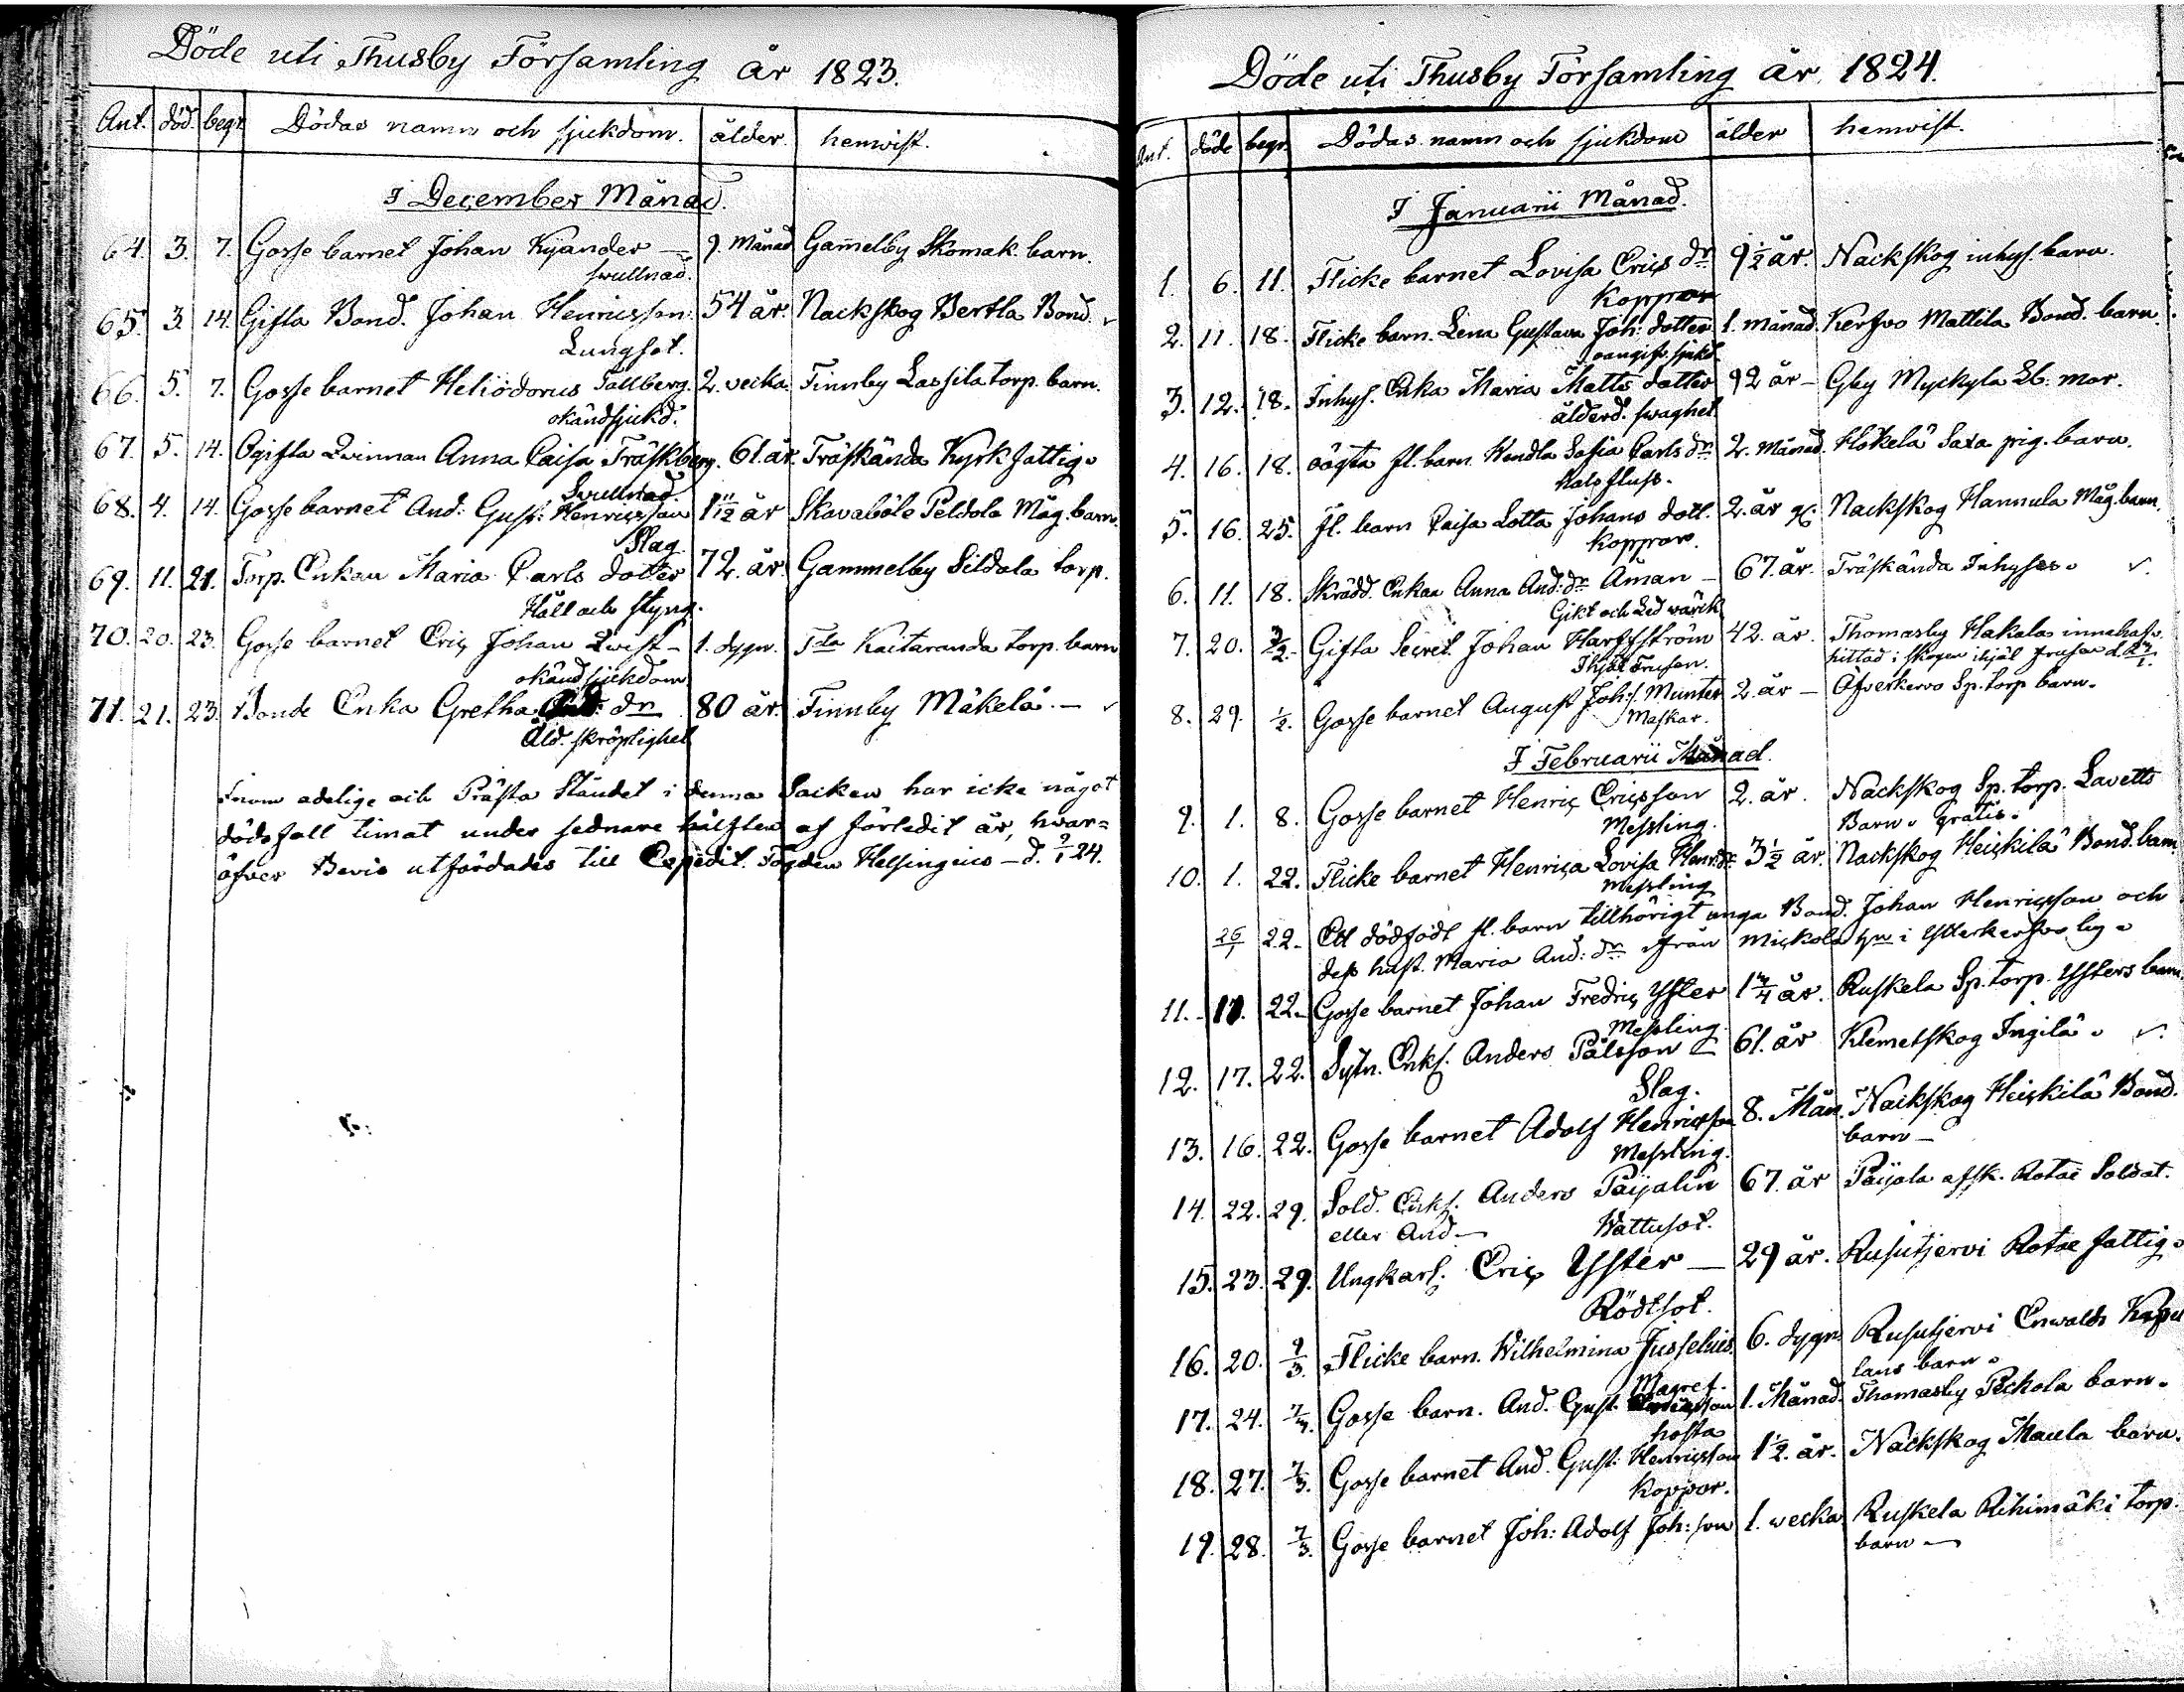 Döde uti Thusby Församling år 1823.
Ant. död. begr. Dödas namn och sjukdom. ålder. hemvist.
I December Månad.
64. 3. 7. Gosse barnet Johan Kyander — 9. Månad Gammelby Skomak. barn.
swullnad.
65. 3. 14. Gifta Bond. Johan Henricsson. 54 år. Nackskog Bertla Bond.
Lungsot.
66. 5. 7. Gosse barnet Heliodorus Tallberg. 2. vecka. Finnby Lassila torp. barn.
okänd sjukd.
67. 5. 14. Ogifta Qvinnan Anna Caisa Träskberg. 61. år. Träskända Kyrk fattig.
Svullnad.
68. 4. 14. Gosse barnet And: Gust: Henricsson 1 11/12 år Skavaböle Peldola Måg. barn.
Slag.
69. 11. 21. Torp. Enkan Maria Carls dotter 72. år. Gammelby Sildala torp.
Håll och styng.
70. 20. 23. Gosse barnet Eric Johan Qvist — 1. dygn. Tda Kaitaranda torp. barn
okänd sjukdom
71. 21. 23. Bonde Enka Gretha dr 80 år. Finnby Mäkelä. —
Åld. skröplighet
Inom adelige och Prästa Ståndet i denna Socken har icke något
dödsfall timat under sednare hälften af förledit år, hvar=
öfver Bevis utfördades till Expedit. Fogden Helsingius — d. 9/1 24.
Döde uti Thusby Församling år 1824.
Ant. döde begr. Dödas namn och sjukdom ålder hemvist.
I Januarii Månad.
1. 6. 11. Flicke barnet Lovisa Erics dr 9 1/2 år. Nackskog inhys. barn.
Koppor
2. 11. 18. Flicke barn. Lena Gustava Joh: dotter 1. månad. Kerfvo Mattila Bond. barn.
oangif. sjukd.
3. 12. 18. Inhys. Enka Maria Matts dotter 92 år — Gby Myckyla
ålderd. swaghet.
4. 16. 18. oägta fl. barn Hendla Sofia Carls dr 2. Månad. Hökelä Saxa pig. barn.
hals fluss.
5. 16. 25. fl. barn Caisa Lotta Johans dott. 2. år Nackskog Hannula Måg. barn.
Koppor.
6. 11. 18. Skrädd. Enkan Anna And: dr Åman — 67. år. Träskända Inhyses.
Gikt och Led wärck
7. 20. Gifta Secret. Johan 42. år. Thomasby Hakala innehaf.
Ihjäl frusen. hittad i skogen ihjäl frusen
8. 29. 1/2. Gosse barnet August Joh: Munter 2. år — Ofverkervo Sp. torp barn.
Maskar.
I Februarii Månad.
9. 1. 8. Gosse barnet Henric Ericsson 2. år. Nackskog Sp. torp. Lavetts
Messling. Barn. gratis.
10. 1. 22. Flicke barnet Henrica Lovisa Henr: dr 3 1/2 år. Nackskog Heickilä Bond. barn
Messling
26/1 22. Ett dödfödt fl. barn tillhörigt unga Bond. Johan Henricsson och
dess hust. Maria And: dr ifrån Mickola hn i Ytterkerfvo by.
11. 17. 22. Gosse barnet Johan Fredric Yster 1 3/4 år. Ruskela Sp. torp. Ysters barn.
Messling.
12. 17. 22. Sytn. Enkl. Anders Pålsson — 61. år Klemetskog Ingilä.
Slag.
13. 16. 22. Gosse barnet Adolf Henricsson 8. Mån. Nackskog Heickilä Bond.
Messling. barn —
14. 22. 29. Sold. Enkl. Anders Paijalin 67. år Paijala afsk. Rotae Soldat.
eller And — Wattusot.
15. 23. 29. Ungkarl. Eric Yster — 29 år. Rusutjervi Rotae fattig.
Rödsot.
16. 20. 9/3. Flicke barn. Wilhelmina Jusselius 6. dygn. Rusutjervi Enwalds Kapel
Magref. lans barn.
17. 24. 7/3. Gosse barn. And. Gust. 1. Månad. Thomasby Peckola barn.
hosta
18. 27. 7/3. Gosse barnet And. Gust: Henricsson 1 1/2. år. Nackskog Maula barn.
Koppor.
19. 28. 7/3. Gosse barnet Joh: Adolf Joh: son 1. wecka Ruskela Rihimäki torp.
barn —